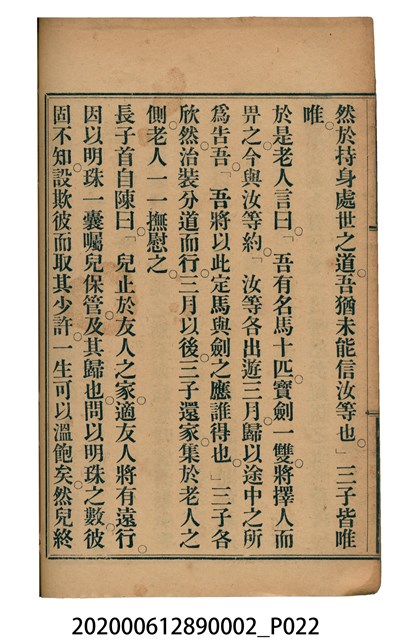 然於持身處世之道。吾猶未能信汝等也。」三子皆唯
唯。
於是老人言曰。「吾有名馬十匹寶劍一雙將擇人而
畀之。今與汝等約。「汝等各出遊三月。歸以途中之所
爲告吾。「吾將以此定馬與劍之應誰得也。」三子各
欣然治裝分道而行。三月以後。三子還家集於老人之
側。老人一一撫慰之。
長子首自陳曰。「兒止於友人之家。適友人將有遠行。
因以明珠一囊囑兒保管。及其歸也。問以明珠之數。彼
固不知。設欺彼而取其少許。一生可以溫飽矣。然兒終
202000612890002_P022